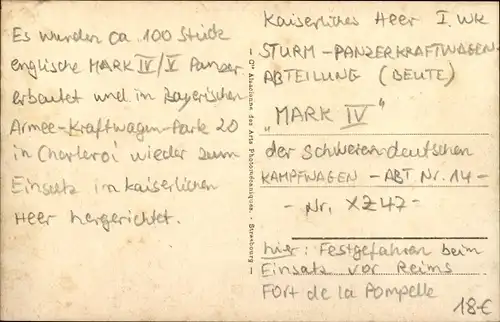 Es wurden ca. 100 Stück
englische MARK IV/V Panzer
erbeutet und im bayerischen
Armee-Kraftwagen-Park 20
in Charleroi wieder zum
Einsatz im kaiserlichen
Heer hergerichtet.
- Cie Alsacienne des Arts Photomécaniques. - Strasbourg -
Kaiserliches Heer I. WK
STURM-PANZERKRAFTWAGEN-
ABTEILUNG (BEUTE)
"MARK IV"
der Schweren deutschen
KAMPFWAGEN-ABT Nr. 14-
- Nr. XZ47 -
hier: Festgefahren beim
Einsatz vor Reims
FORT de la POMPELLE
18€